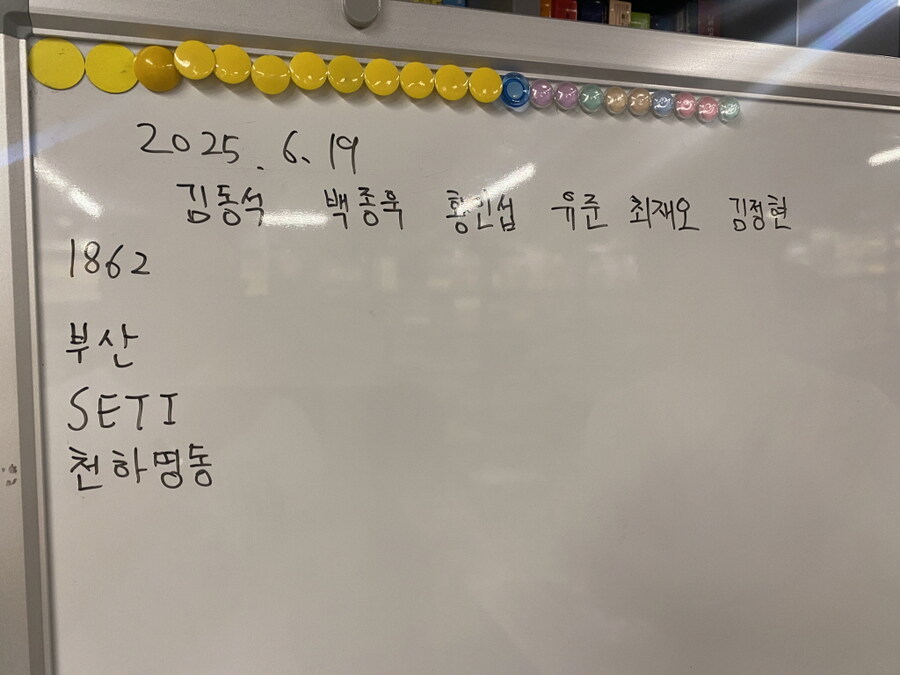 2025. 6. 19
김동석 백종욱 황인섭 유준 최재오 김정현
1862
부산
SETI
천하명동